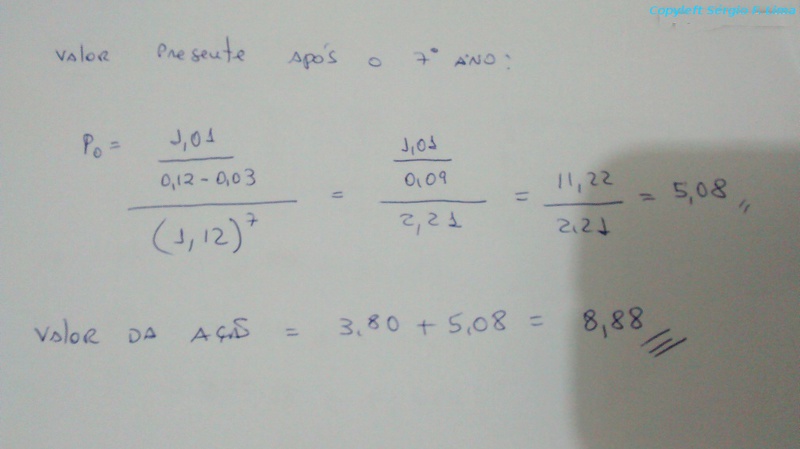 Copyleft Sérgio R Lima
Valor Presente após o 7º ano:
P₀ = (1,01 / (0,12 - 0,03)) / (1,12)⁷ = (1,01 / 0,09) / 2,21 = 11,22 / 2,21 = 5,08
Valor da Ação = 3,80 + 5,08 = 8,88